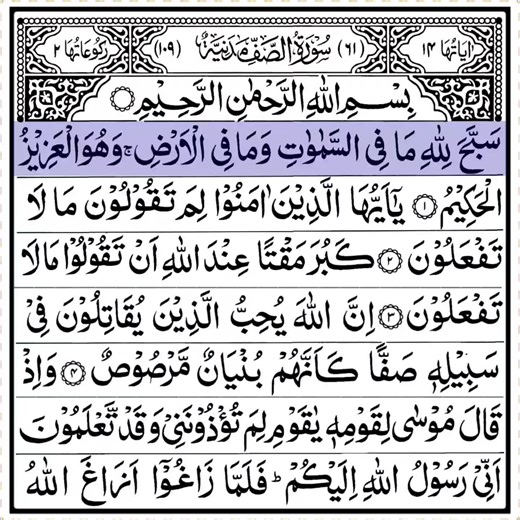 اٰيَاتُهَا ۱۴ (۶۱) سُوْرَةُ الصَّفِّ مَدَنِيَّةٌ (۱۰۹) رُكُوْعَاتُهَا ۲
بِسْمِ اللّٰهِ الرَّحْمٰنِ الرَّحِيْمِ ۝
سَبَّحَ لِلّٰهِ مَا فِی السَّمٰوٰتِ وَمَا فِی الْاَرْضِ ۚ وَهُوَ الْعَزِيْزُ
الْحَكِيْمُ ۝۱ يٰۤاَيُّهَا الَّذِيْنَ اٰمَنُوْا لِمَ تَقُوْلُوْنَ مَا لَا
تَفْعَلُوْنَ ۝۲ كَبُرَ مَقْتًا عِنْدَ اللّٰهِ اَنْ تَقُوْلُوْا مَا لَا
تَفْعَلُوْنَ ۝۳ اِنَّ اللّٰهَ يُحِبُّ الَّذِيْنَ يُقَاتِلُوْنَ فِیْ
سَبِيْلِهٖ صَفًّا كَاَنَّهُمْ بُنْيَانٌ مَّرْصُوْصٌ ۝۴ وَاِذْ
قَالَ مُوْسٰی لِقَوْمِهٖ يٰقَوْمِ لِمَ تُؤْذُوْنَنِیْ وَقَدْ تَّعْلَمُوْنَ
اَنِّیْ رَسُوْلُ اللّٰهِ اِلَيْكُمْ ؕ فَلَمَّا زَاغُوْۤا اَزَاغَ اللّٰهُ